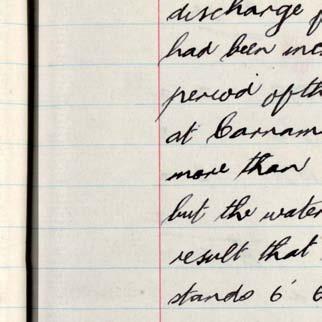 discharge
had been
period of th
at Carnam
more than
but the water
result that
stands 6' 6